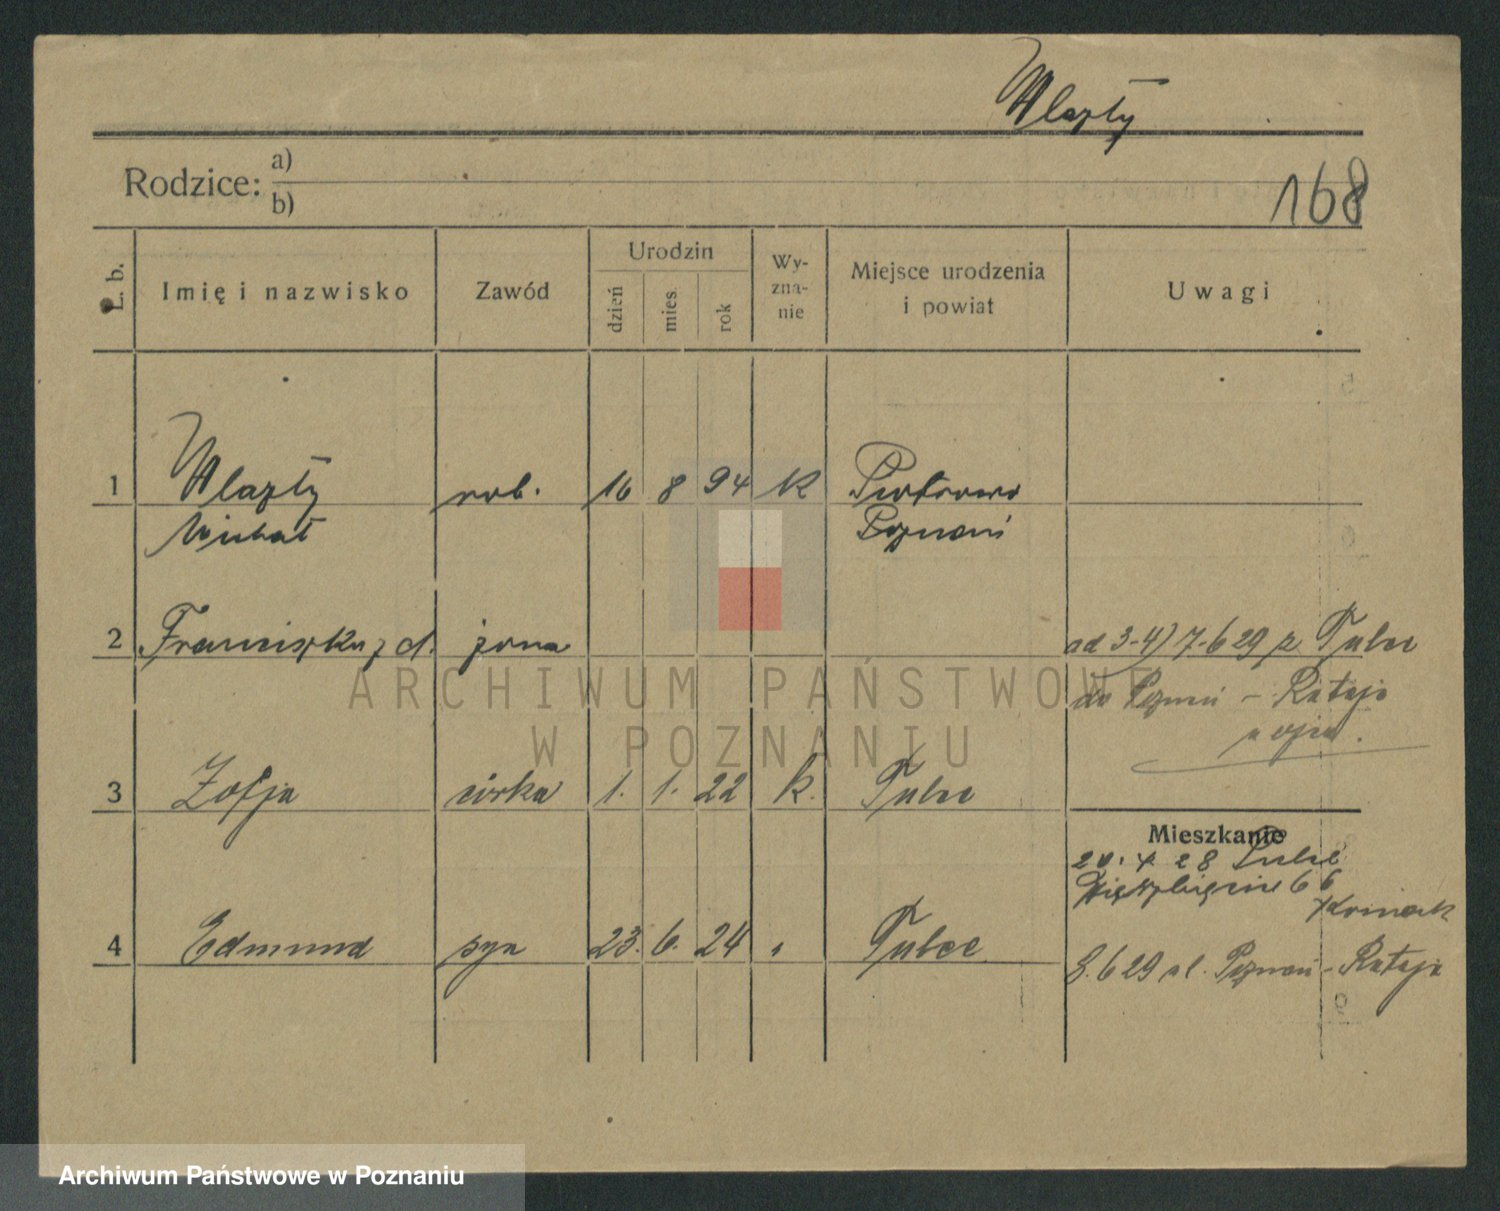 Wlazły
168
Rodzice: a)
b)
L. b.
Imię i nazwisko
Zawód
Urodzin
dzień
mies.
rok
Wy-
zna-
nie
Miejsce urodzenia
i powiat
Uwagi
1 Wlazły rob. 16 8 94 k Piotrowo
Michał Poznań
2 Franciszka z d. żona
ad 3-4) 7-6 29 z Tulce
do Poznań - Rataje
3 Zofja córka 1. 1. 22 k. Tulce
Mieszkanie
20. 4 28 Tulce
66
4 Edmund syn 23. 6. 24 " Tulce
8. 6 29 Poznań - Rataje
ARCHIWUM PAŃSTWOWE
W POZNANIU
Archiwum Państwowe w Poznaniu